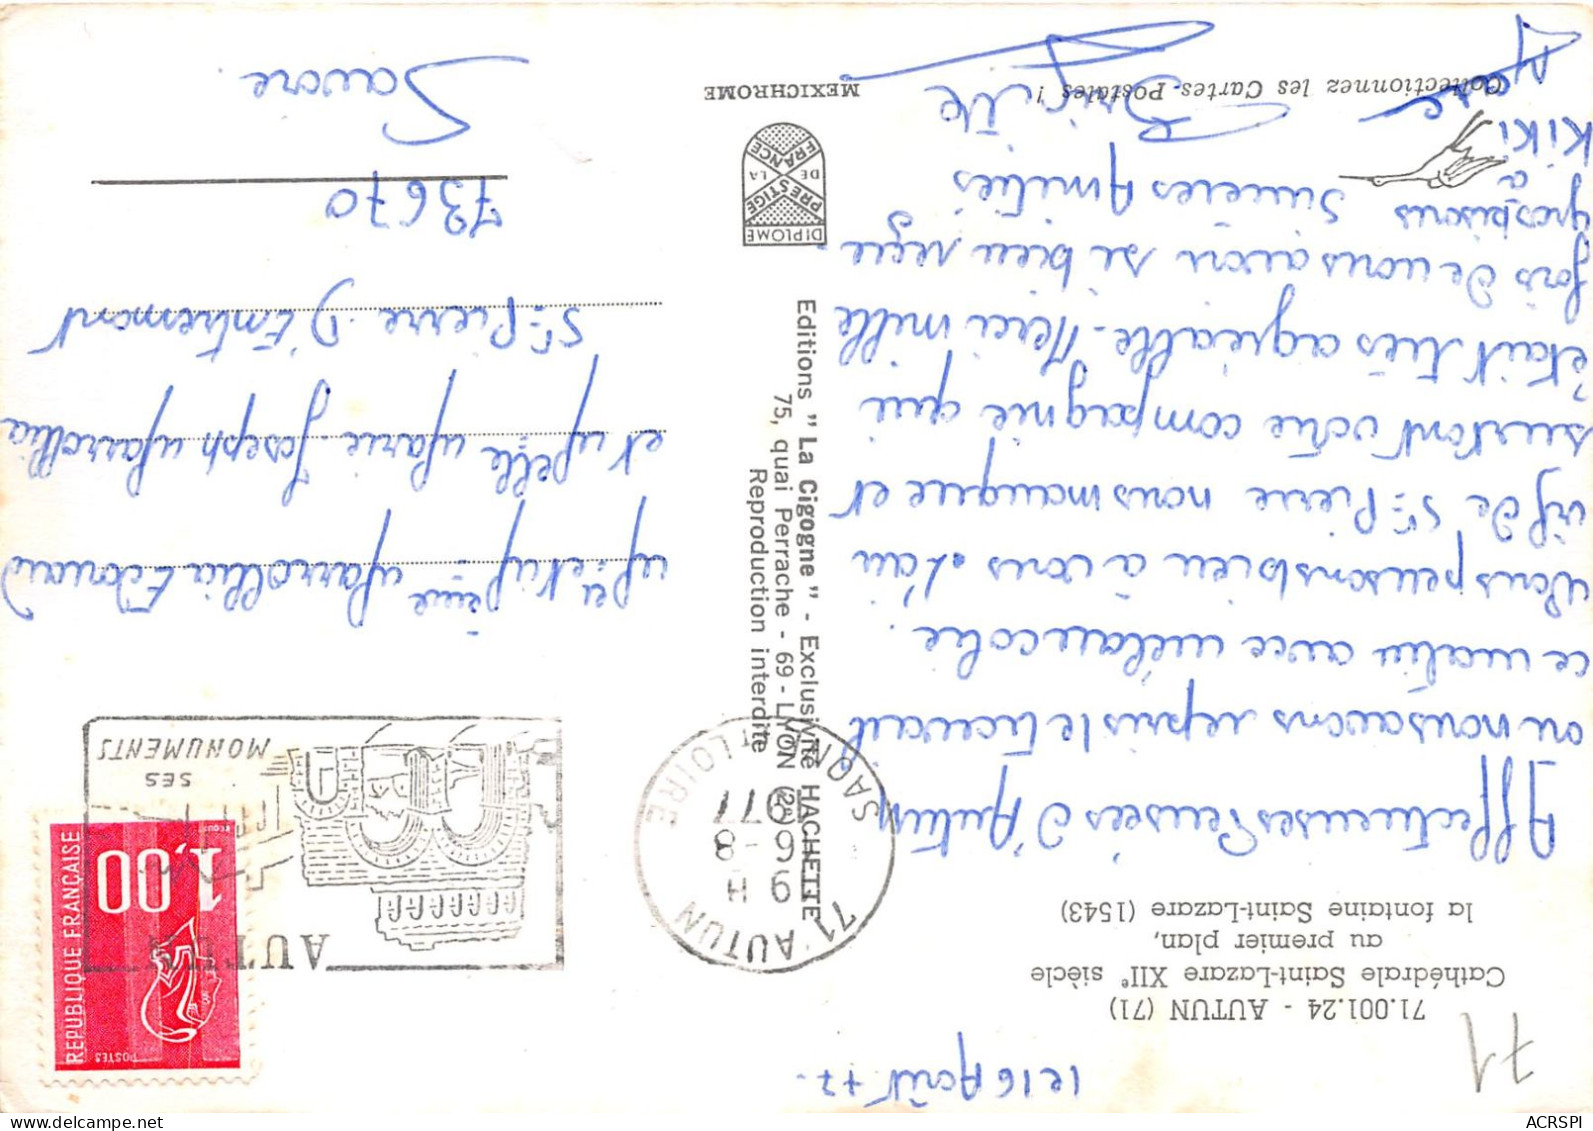 71.001.24 - AUTUN (71)
Cathédrale Saint-Lazare XIIe siècle
au premier plan,
la fontaine Saint-Lazare (1543)
71
le 16 Août 77.
Affectueuses Pensées d'Autun
où nous avons repris le travail
ce matin avec mélancolie.
Nous pensons bien à vous l'air
vif de St Pierre nous manque et
surtout votre compagnie qui
était très agréable. Merci mille
fois de nous avoir si bien reçu.
gros bisous Sincères Amitiés
à
Kiki
Brigitte
Collectionnez les Cartes-Postales !
MEXICHROME
DIPLOME
PRESTIGE
DE LA
FRANCE
Editions "La Cigogne" - Exclusivité HACHETTE
75, quai Perrache - 69 - LYON (2e)
Reproduction interdite
71 AUTUN
SAONE ET LOIRE
AUTUN
SES
MONUMENTS
REPUBLIQUE FRANÇAISE
1,00
POSTES
Mr et Mme Marrollia Edouard
et Melle Marie Joseph Marrollia
St Pierre D'Entremont
73670
Savoie
ACRSPI